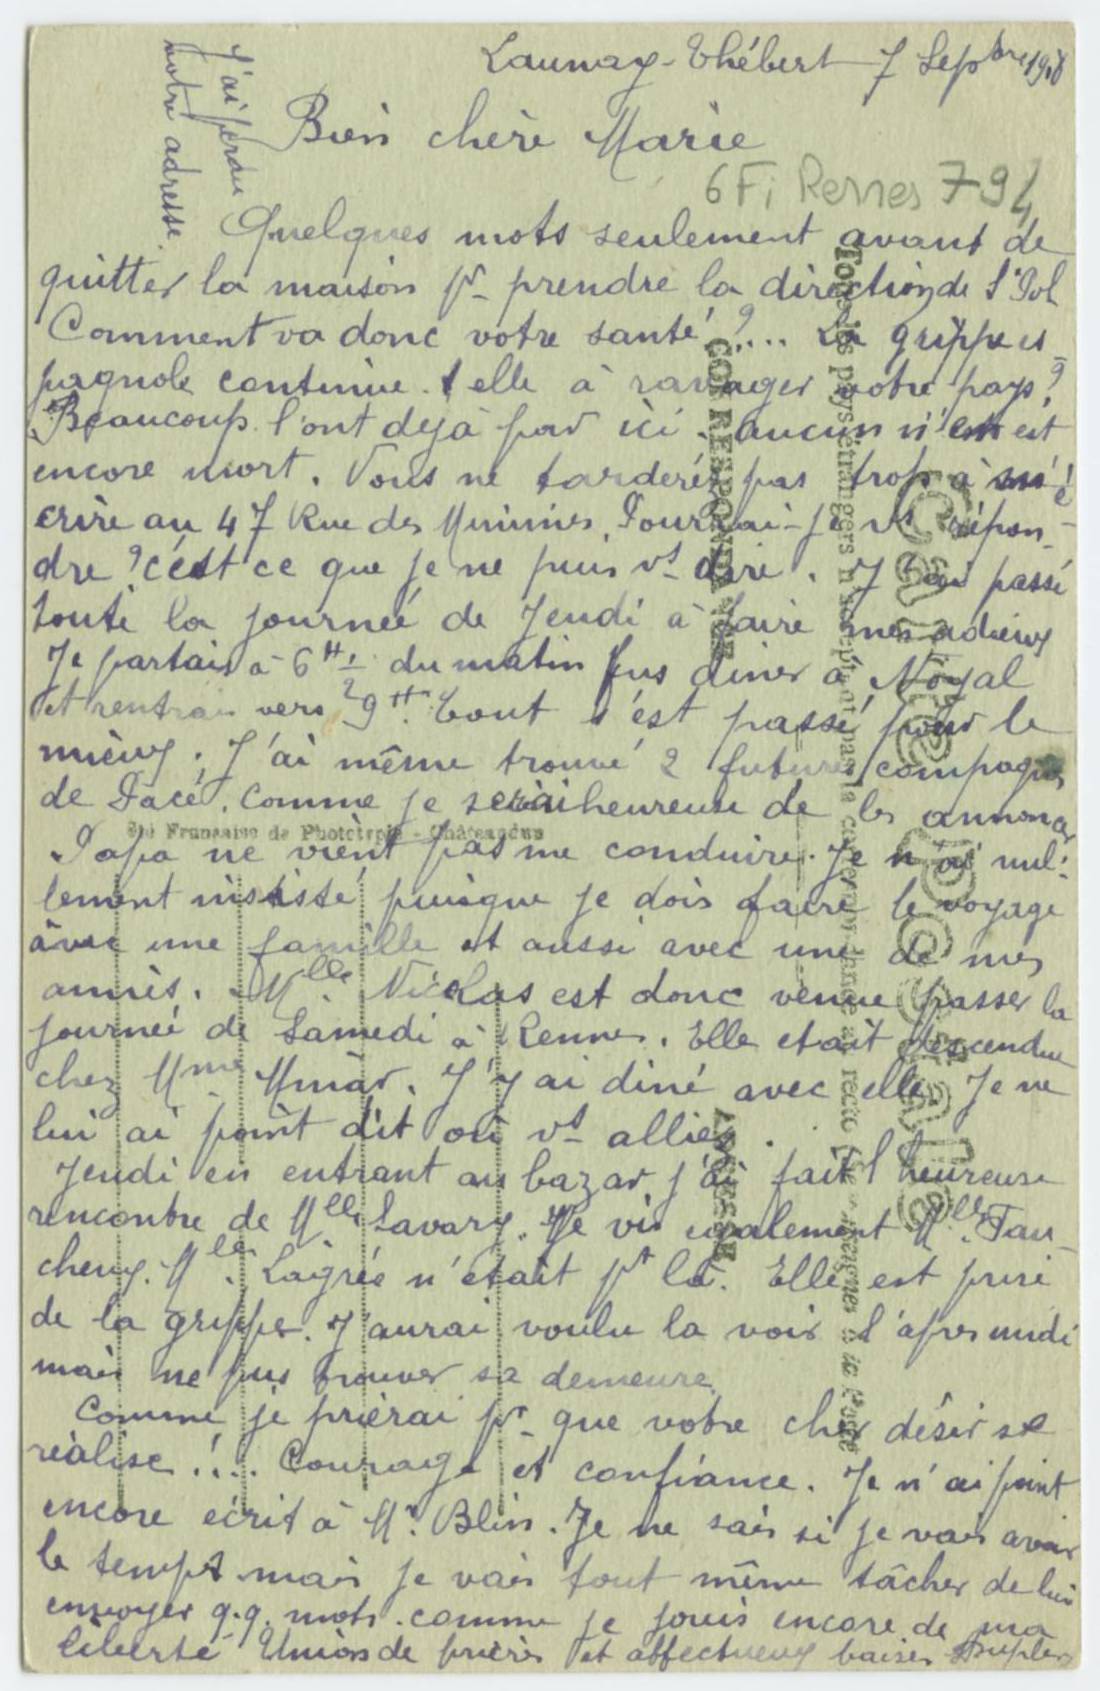 Launay-Thébert 7 Sepbre 1918
J'ai perdu
votre adresse.
Bien chère Marie
6Fi Rennes 794
Quelques mots seulement avant de
quitter la maison pr prendre la direction de
Comment va donc votre santé ?.... La grippe es-
pagnole continue-t elle à ravager votre pays ?
Beaucoup l'ont déjà par ici. aucun n'en est
encore mort. Vous ne tarderez pas trop à m'é-
crire au 47 Rue des Minimes. Pourrai-je vs répon-
dre ? c'est ce que je ne puis vs dire. J'ai passé
toute la journée de Jeudi à faire mes adieux
Je partais à 6 H du matin fus diner à Noyal
et rentrai vers 9 H. Tout s'est passé pour le
mieux. J'ai même trouvé 2 futures compagnes
de Pacé. comme je serai heureuse de les annoncer
Sté Française de Phototypie - Châteaudun
Papa ne vient pas me conduire. Je n'ai nul-
lement insisté puisque je dois faire le voyage
avec une famille et aussi avec une de mes
amies. Mlle Nicolas est donc venue passer la
journée de Samedi à Rennes. Elle etait descendue
chez Mme . J'y ai diné avec elle. Je ne
lui ai point dit où vs alliez.
Jeudi en entrant au bazar j'ai fait l'heureuse
rencontre de Mlle Savary. Je vis egalement Mlle Fau-
cheux. Mlle Lagrée n'était pt là. Elle est prise
de la grippe. J'aurai voulu la voir l'après midi
mais ne pus trouver sa demeure.
Comme je prierai pr que votre cher désir se
réalise !... Courage et confiance. Je n'ai point
encore écrit à Mr. Blin. Je ne sais si je vais avoir
le temps mais je vais tout même tâcher de lui
envoyer q.q. mots. comme je jouis encore de ma
liberté Union de prières et affectueux baisers
Carte Postale
Tous les pays étrangers n'acceptent pas la correspondance au recto (Se renseigner à la Poste
CORRESPONDANCE
ADRESSE